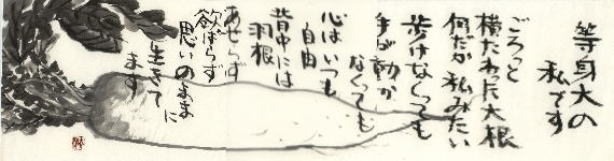 等身大の
私です
ごろっと
横たわった大根
何だか私みたい
歩けなくっても
手が動か
なくっても
心はいつも
自由
背中には
羽根
あせらず
欲ばらず
思いのまま
に
生きて
ます